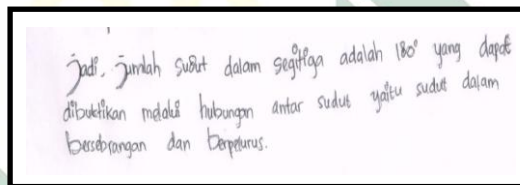 Jadi, Jumlah sudut dalam segitiga adalah 180° yang dapat
dibuktikan melalui hubungan antar sudut yaitu sudut dalam
bersebrangan dan berpelurus.